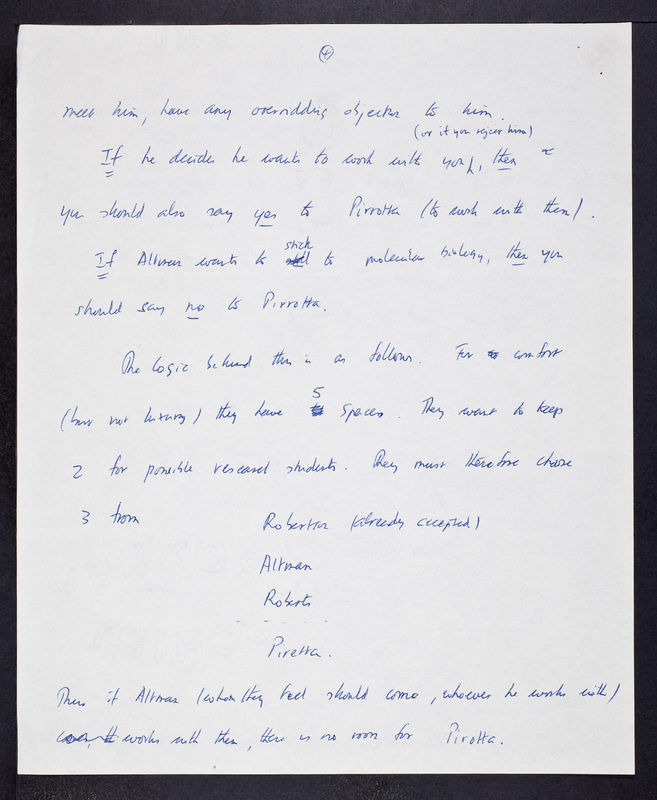 4
meet him, have any overridding objection to him.
(or if you reject him)
If he decides he wants to work with you, then
you should also say yes to Pirrotta (to work with them).
stick
If Altman wants to to molecular biology, then you
should say no to Pirrotta.
The logic behind this is as follows. For comfort
5
(but not luxury) they have spaces. They want to keep
2 for possible research students. They must therefore choose
3 from Robertson (already accepted)
Altman
Roberts
Piretta.
Thus if Altman (whom they feel should come, whoever he works with)
works with them, there is no room for Pirotta.